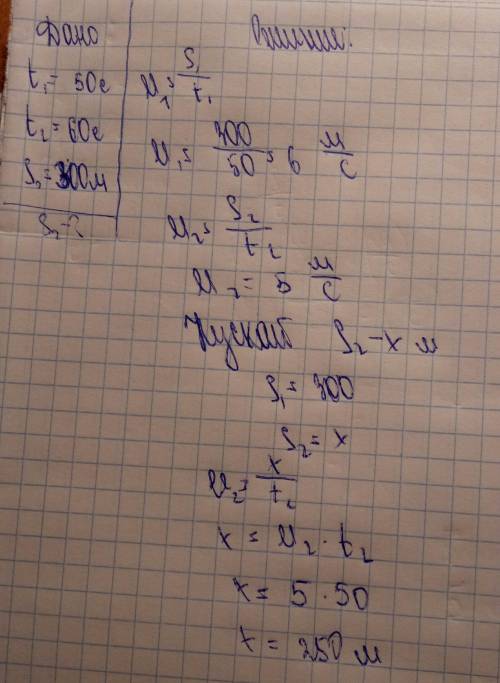 Дано
t₁ = 50с
t₂ = 60с
S₁ = 300м
S₂ - ?
Решение:
υ₁ = S₁/t₁
υ₁ = 300/50 = 6 м/с
υ₂ = S₂/t₂
υ₂ = 5 м/с
Пускай S₂ - x м
S₁ = 300
S₂ = x
υ₂ = x/t₂
x = υ₂ · t₂
x = 5 · 50
x = 250 м